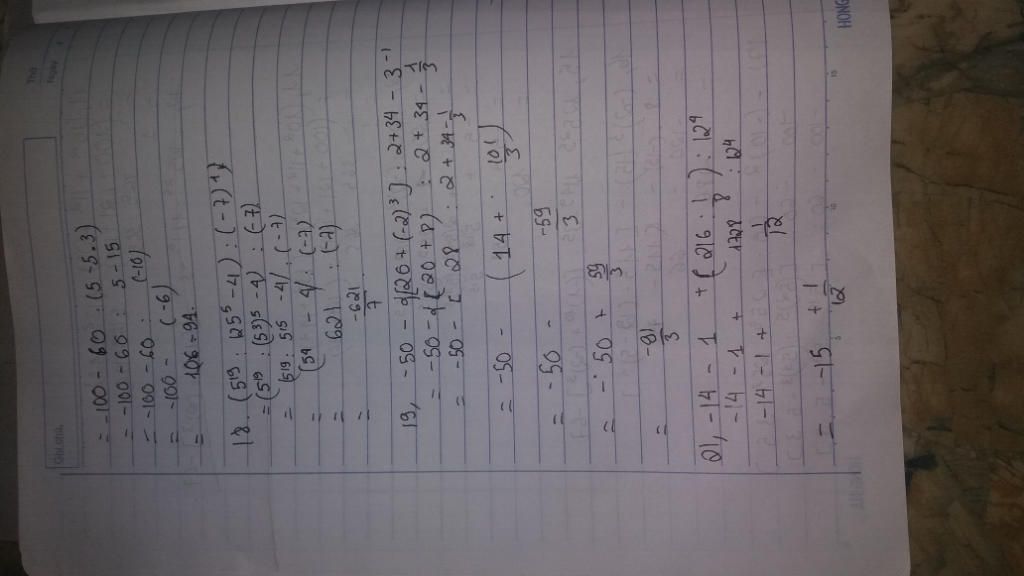 Thứ
Ngày
= -100 - 60 : (5 - 5.3)
= -100 - 60 : 5 - 15
= -100 - 60 : (-10)
= -100 - (-6)
= 106 = 94.
18. (5^19 : 125^5 - 4) : (-7)^1)
= (5^19 : (5^3)^5 - 4) : (-7)
= (5^19 : 5^15 - 4) : (-7)
= (5^4 - 4) : (-7)
= 621 : (-7)
= -621/7
19, -50 - 2[20 + (-2)^3] : 2 + 34 - 3^-1
= -50 - 2[20 + 8) : 2 + 34 - 1/3
= -50 - [ 28 : 2 + 34 - 1/3
= -50 - (14 + 101/3)
= -50 - -59/3
= - 50 + 59/3
= -91/3
21, -14 - 1 + (216 . 8) : 12^4
-14 - 1 + 1728 : 12^4
= -14 - 1 + 1/12
= -15 + 1/12
HONG